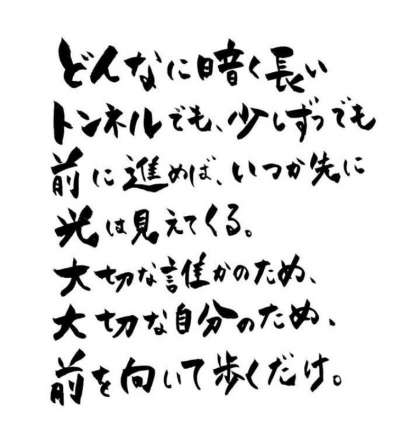 どんなに暗く長い
トンネルでも、少しずつでも
前に進めば、いつか先に
光は見えてくる。
大切な誰かのため、
大切な自分のため、
前を向いて歩くだけ。